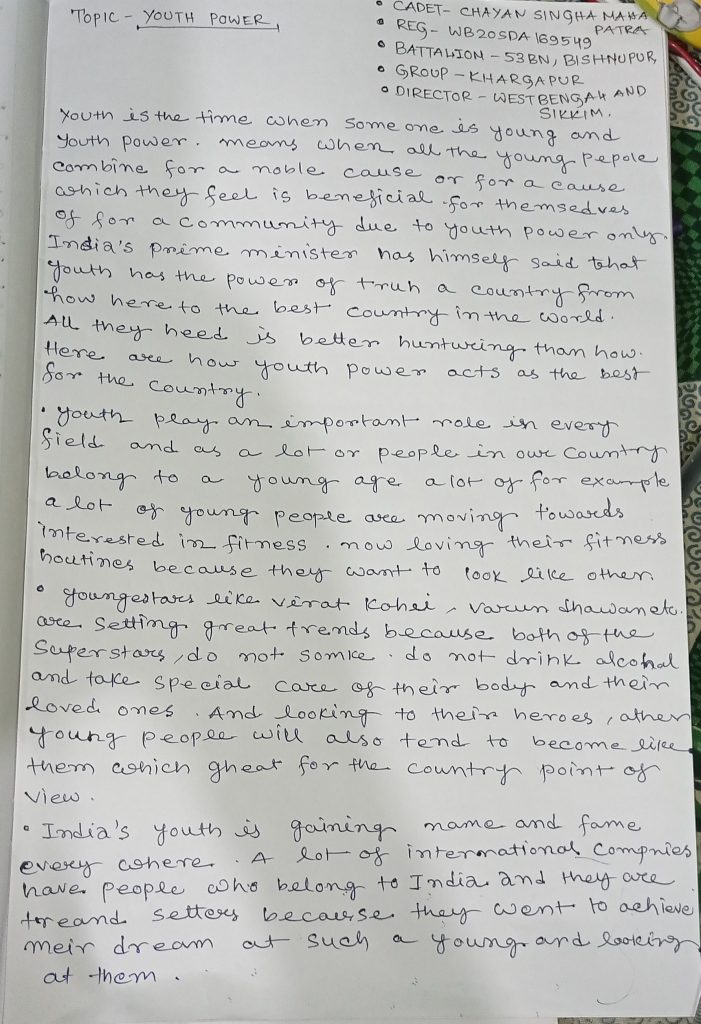 Topic - YOUTH POWER
• CADET- CHAYAN SINGHA MAHA
PATRA
• REG- WB20SDA169549
• BATTALION - 53BN, BISHNUPUR
• GROUP - KHARGAPUR
• DIRECTOR - WESTBENGAL AND
SIKKIM.
Youth is the time when some one is young and
Youth power. means when all the young pepole
combine for a noble cause or for a cause
which they feel is beneficial for themsedves
of for a community due to youth power only.
India's prime minister has himself said that
youth has the power of truh a country from
how here to the best country in the world.
All they heed is better hunturing than how.
Here are how youth power acts as the best
for the country.
• youth play an important role in every
field and as a lot or people in our country
belong to a young age a lot of for example
a lot of young people are moving towards
interested in fitness. now loving their fitness
houtines because they want to look like other.
• youngestars like virat Kohei, varun dhawan etc.
are setting great trends because both of the
Superstars, do not somke. do not drink alcohal
and take special care of their body and their
loved ones. And looking to their heroes, other
young people will also tend to become like
them which gheat for the country point of
view.
• India's youth is gaining name and fame
every where. A lot of international compnies
have people who belong to India and they are
treand setters because they went to achieve
meir dream at such a young and looking
at them.